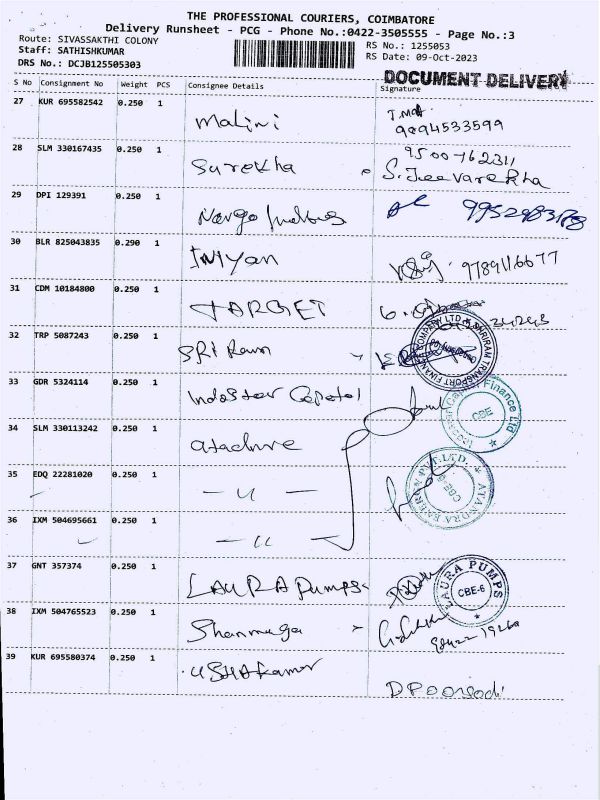 THE PROFESSIONAL COURIERS, COIMBATORE
Delivery Runsheet - PCG - Phone No.:0422-3505555 - Page No.:3
Route: SIVASSAKTHI COLONY
RS No.: 1255053
Staff: SATHISHKUMAR
RS Date: 09-Oct-2023
DRS No.: DCJB125505303
DOCUMENT DELIVERY
S No Consignment No Weight PCS Consignee Details Signature
27 KUR 695582542 0.250 1 Malini
9894533599
28 SLM 330167435 0.250 1 Surekha 9500762311
S. Jeevarekha
29 DPI 129391 0.250 1
30 BLR 825043835 0.290 1 INIyan 9789116677
31 CDM 10184800 0.250 1 TARGET
32 TRP 5087243 0.250 1 SRI Ram
33 GDR 5324114 0.250 1 IndoStar Capital
CBE
34 SLM 330113242 0.250 1
35 EDQ 22281020 0.250 1 - 11 -
36 IXM 504695661 0.250 1 - 11 -
37 GNT 357374 0.250 1 LAURA Pumps
LAURA PUMPS
CBE-6
38 IXM 504765523 0.250 1 Shanmuga
39 KUR 695580374 0.250 1 USHAKumar